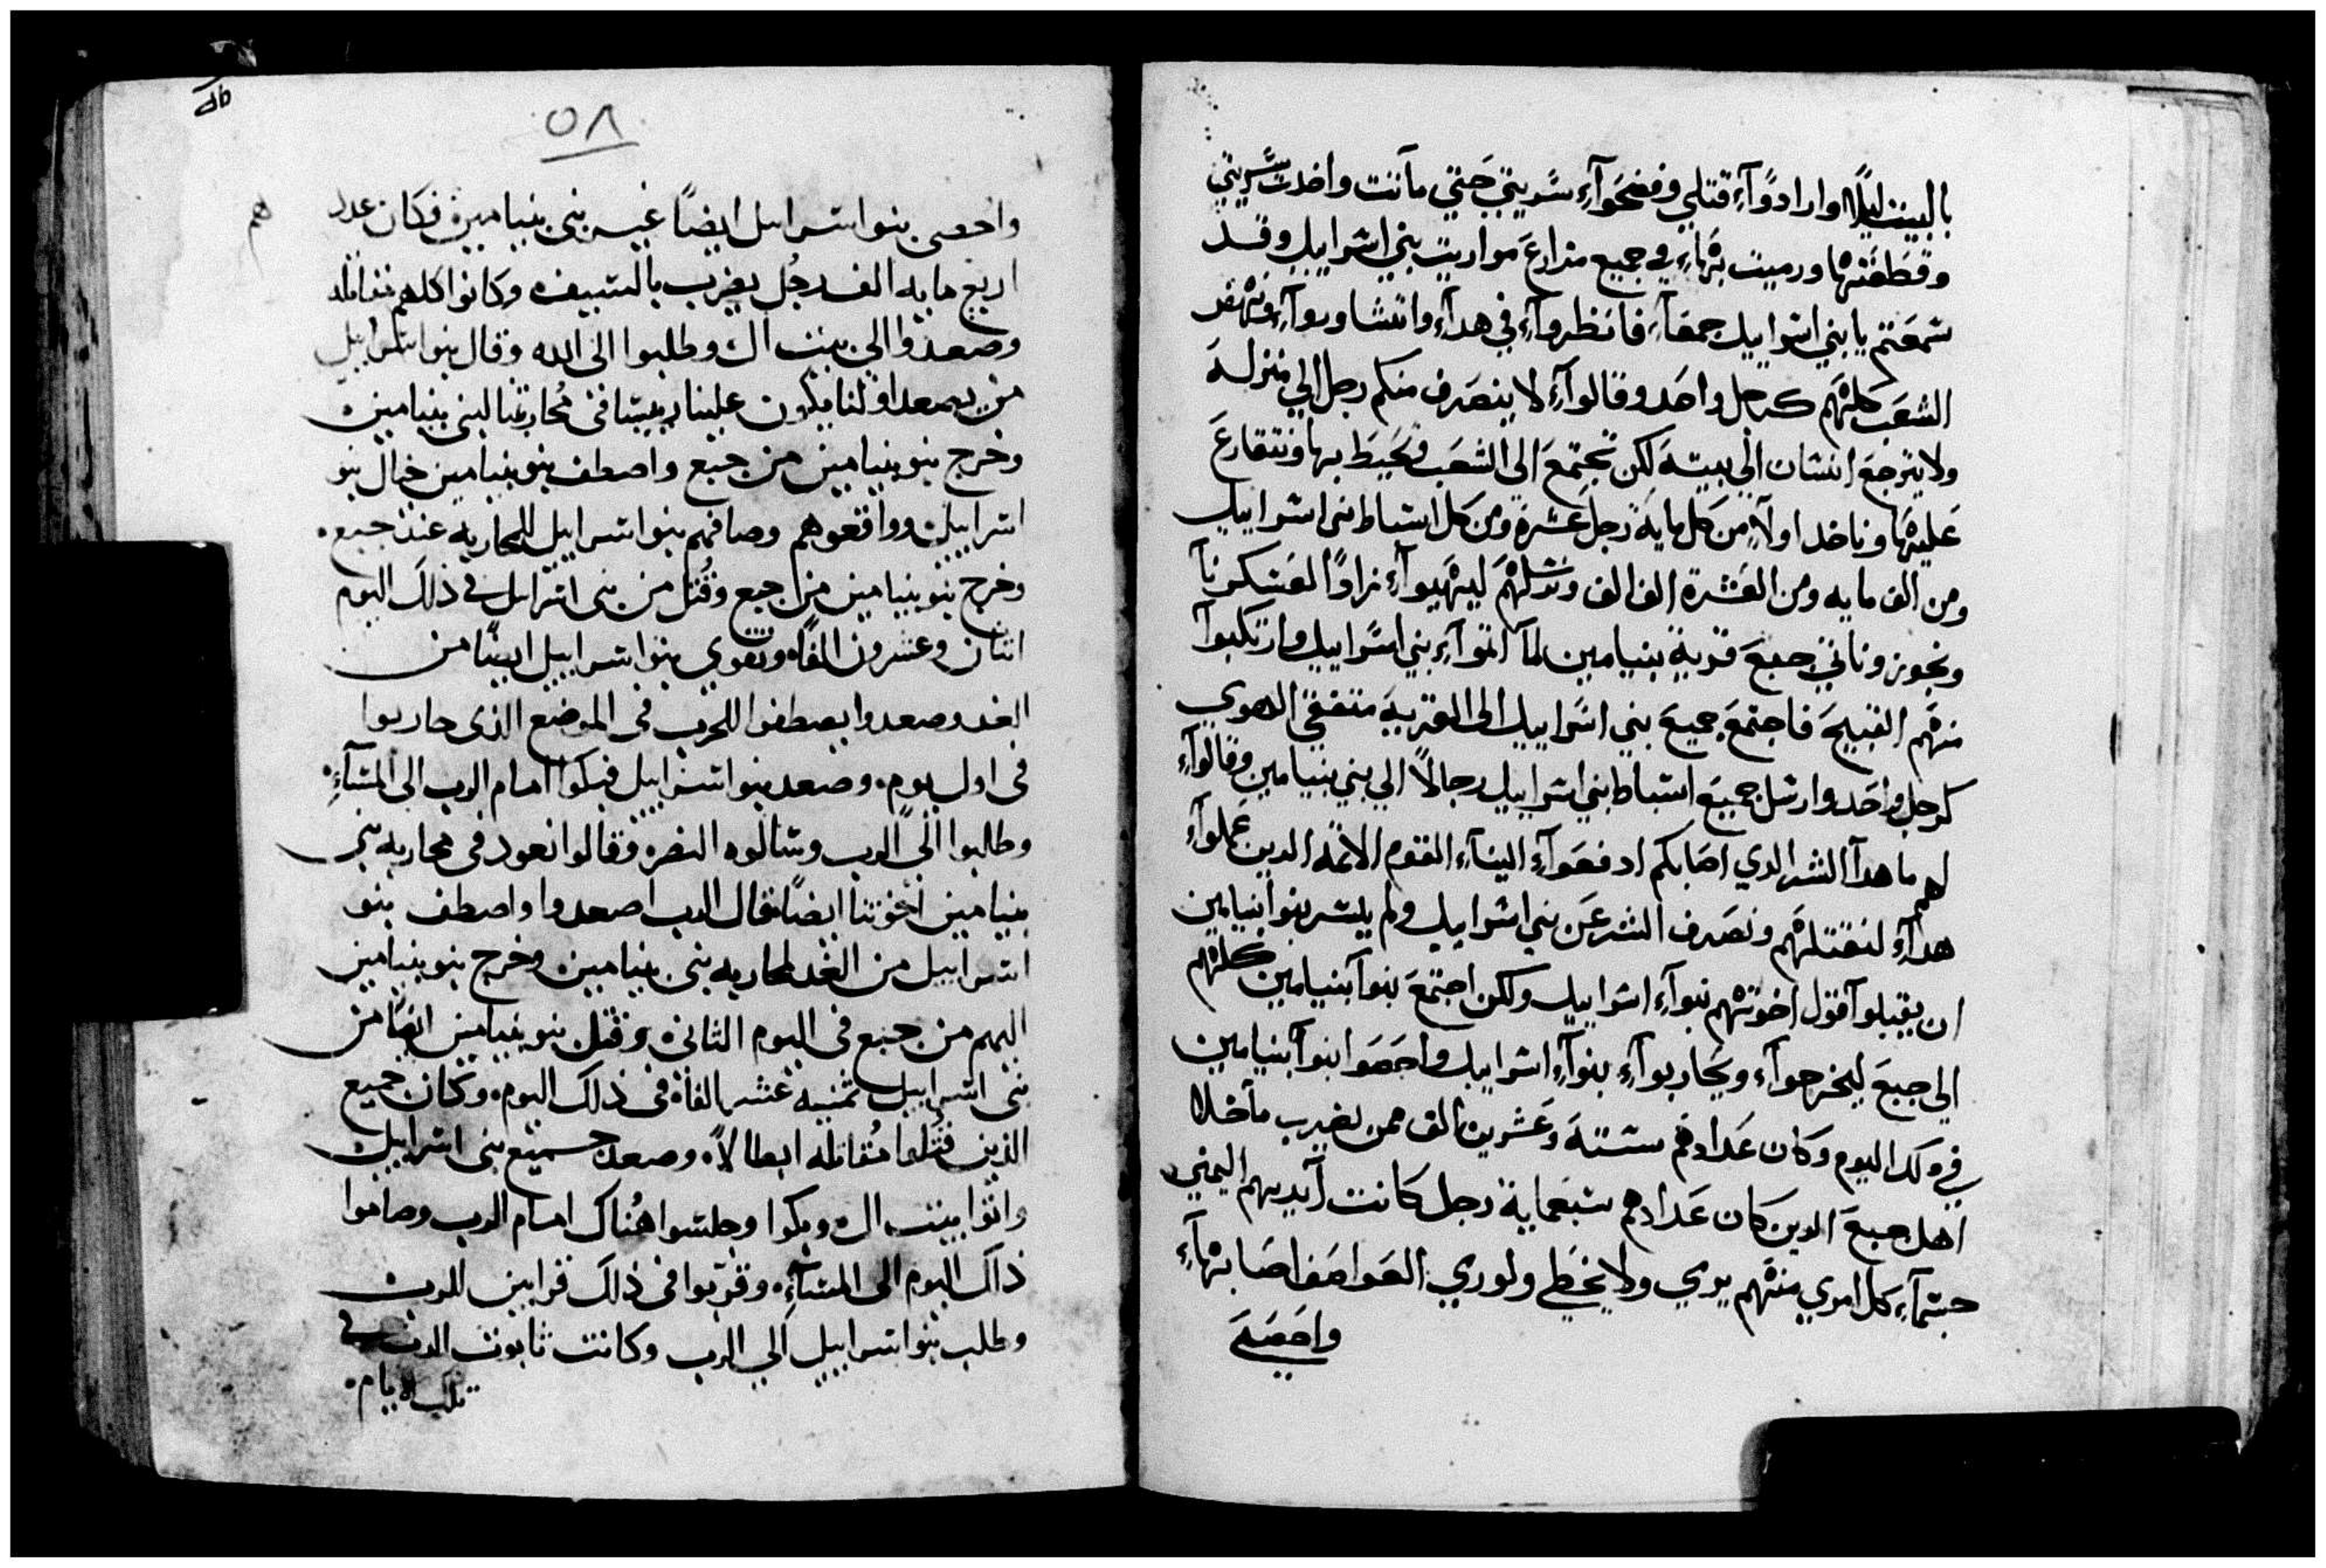 بالبيت ليلًا وارادوآءِ قتلي وفضحوآءِ سريتي حتي مآتت واخدت سريتي
وقطعتها ورميت بهآءِ في جميع مزارع مواريت بني اسراييل وقد
سمعتم يا بني اسراييل جمعآءِ فانظروآءِ في هدآءِ واتشاوروآءِ ونهض
الشعب كلهم كرجل واحد وقالوآءِ لا ينصرف منكم رجل الي منزله
ولا يترجع انسان الي بيته لكن نجتمع الى الشعب ونحيط بها ونتقارع
عليها وناخد اولًا من كل مايه رجل عشرة ومن كل اسباط بني اسراييل
ومن الف مايه ومن العشرة الف الف ونرسلهم ليهيوآءِ زادًا لعسكرنآ
ونجوز وناتي جبع قرية بنيامين لمآ اتوآءِ بني اسراييل وارتكبوآ
منهم القبيح فاجتمع جميع بني اسراييل الى القرية متفقي الهوي
كرجل واحد وارسل جميع اسباط بني اسراييل رجالًا الي بني بنيامين وقالوآءِ
لهم ما هدآ الشر الدي اصابكم ادفعوآءِ الينآءِ القوم الاثمه الدين عملوآءِ
هدآءِ لنقتلهم ونصرف الشر عن بني اسراييل ولم يسر بنوا بنيامين
ان يقبلوآ قول اخوتهم بنوآءِ اسراييل ولكن اجتمع بنوآ بنيامين كلهم
الي جبع ليخرجوآء ويحاربوآءِ بنوآءِ اسراييل واحصوا بنوآ بنيامين
في دلك اليوم وكان عدادهم ستة وعشرين الف ممن يضرب مآخلا
اهل جبع الدين كان عدادهم سبعماية رجل كانت آيديهم اليمني
حتمآءِ كل امري منهم يرمي ولا يخطي ولوري العواصف اصابهآءِ
واحصي
٥٨
هم
واحصى بنو اسراىيل ايضاً غير بنى بنيامين فكان عدد
اربع مايه الف رجُل يضرب بالسيف وكانوا كلهم مقاتله
وصعدوا الى بيت ال وطلبوا الى الله وقال بنو اسراييل
من يصعد اولنا يكون علينا رييسا فى مُحاربتنا لبنى بنيامين
وخرج بنو بنيامين من جبع واصطف بنو بنيامين حيال بنو
اسراييل وواقعوهم وصافهم بنو اسراييل للمحاربه عند جبع.
وخرج بنو بنيامين من جبع وقُتل من بنى اسراييل فى ذلك اليوم
اثنان وعشرون الفاً. وتقوي بنو اسراييل ايضاً من
الغد وصعدوا يصطفوا للحرب فى الموضع الذى حاربوا
فى اول يوم. وصعد بنو اسراييل فبكوا امام الرب الى المسآءِ.
وطلبوا الى الرب وسالوه النصره وقالوا نعود فى محاربه بنى
بنيامين اخوتنا ايضاً فقال الرب اصعدوا واصطف بنو
اسراييل من الغد لمحاربه بنى بنيامين وخرج بنو بنيامين
اليهم من جبع فى اليوم الثانى. وقتل بنو بنيامين ايضاً من
بنى اسراييل ثمنيه عشر الفاً فى ذلك اليوم. وكان جميع
الذين قتلوا مُقاتله ابطالاً. وصعد جميع بنى اسراييل
واتوا بيت ال وبكوا وجلسوا هُناك امام الرب وصاموا
ذلك اليوم الى المسآءِ. وقرّبوا فى ذلك قرابين للرب
وطلب بنو اسراييل الي الرب وكانت تابوت الرب فى
تلك الايام.